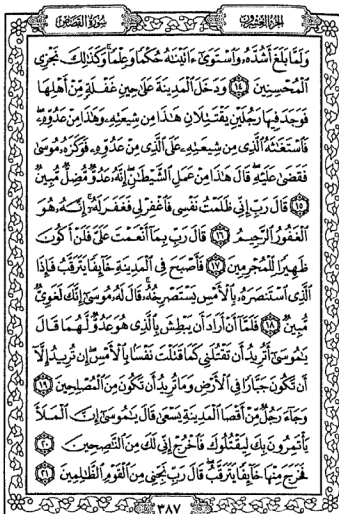 سُورَةُ القَصَصِ
الجُزءُ العِشرُونَ
وَلَمَّا بَلَغَ أَشُدَّهُۥ وَٱسْتَوَىٰٓ ءَاتَيْنَٰهُ حُكْمًا وَعِلْمًا ۚ وَكَذَٰلِكَ نَجْزِى
ٱلْمُحْسِنِينَ ١٤ وَدَخَلَ ٱلْمَدِينَةَ عَلَىٰ حِينِ غَفْلَةٍ مِّنْ أَهْلِهَا
فَوَجَدَ فِيهَا رَجُلَيْنِ يَقْتَتِلَانِ هَٰذَا مِن شِيعَتِهِۦ وَهَٰذَا مِنْ عَدُوِّهِۦ ۖ
فَٱسْتَغَٰثَهُ ٱلَّذِى مِن شِيعَتِهِۦ عَلَى ٱلَّذِى مِنْ عَدُوِّهِۦ فَوَكَزَهُۥ مُوسَىٰ
فَقَضَىٰ عَلَيْهِ ۖ قَالَ هَٰذَا مِنْ عَمَلِ ٱلشَّيْطَٰنِ ۖ إِنَّهُۥ عَدُوٌّ مُّضِلٌّ مُّبِينٌ
١٥ قَالَ رَبِّ إِنِّى ظَلَمْتُ نَفْسِى فَٱغْفِرْ لِى فَغَفَرَ لَهُۥٓ ۚ إِنَّهُۥ هُوَ
ٱلْغَفُورُ ٱلرَّحِيمُ ١٦ قَالَ رَبِّ بِمَآ أَنْعَمْتَ عَلَىَّ فَلَنْ أَكُونَ
ظَهِيرًا لِّلْمُجْرِمِينَ ١٧ فَأَصْبَحَ فِى ٱلْمَدِينَةِ خَآئِفًا يَتَرَقَّبُ فَإِذَا
ٱلَّذِى ٱسْتَنصَرَهُۥ بِٱلْأَمْسِ يَسْتَصْرِخُهُۥ ۚ قَالَ لَهُۥ مُوسَىٰٓ إِنَّكَ لَغَوِىٌّ
مُّبِينٌ ١٨ فَلَمَّآ أَنْ أَرَادَ أَن يَبْطِشَ بِٱلَّذِى هُوَ عَدُوٌّ لَّهُمَا قَالَ
يَٰمُوسَىٰٓ أَتُرِيدُ أَن تَقْتُلَنِى كَمَا قَتَلْتَ نَفْسًۢا بِٱلْأَمْسِ ۖ إِن تُرِيدُ إِلَّآ
أَن تَكُونَ جَبَّارًا فِى ٱلْأَرْضِ وَمَا تُرِيدُ أَن تَكُونَ مِنَ ٱلْمُصْلِحِينَ ١٩
وَجَآءَ رَجُلٌ مِّنْ أَقْصَا ٱلْمَدِينَةِ يَسْعَىٰ قَالَ يَٰمُوسَىٰٓ إِنَّ ٱلْمَلَأَ
يَأْتَمِرُونَ بِكَ لِيَقْتُلُوكَ فَٱخْرُجْ إِنِّى لَكَ مِنَ ٱلنَّٰصِحِينَ ٢٠
فَخَرَجَ مِنْهَا خَآئِفًا يَتَرَقَّبُ ۖ قَالَ رَبِّ نَجِّنِى مِنَ ٱلْقَوْمِ ٱلظَّٰلِمِينَ ٢١
٣٨٧